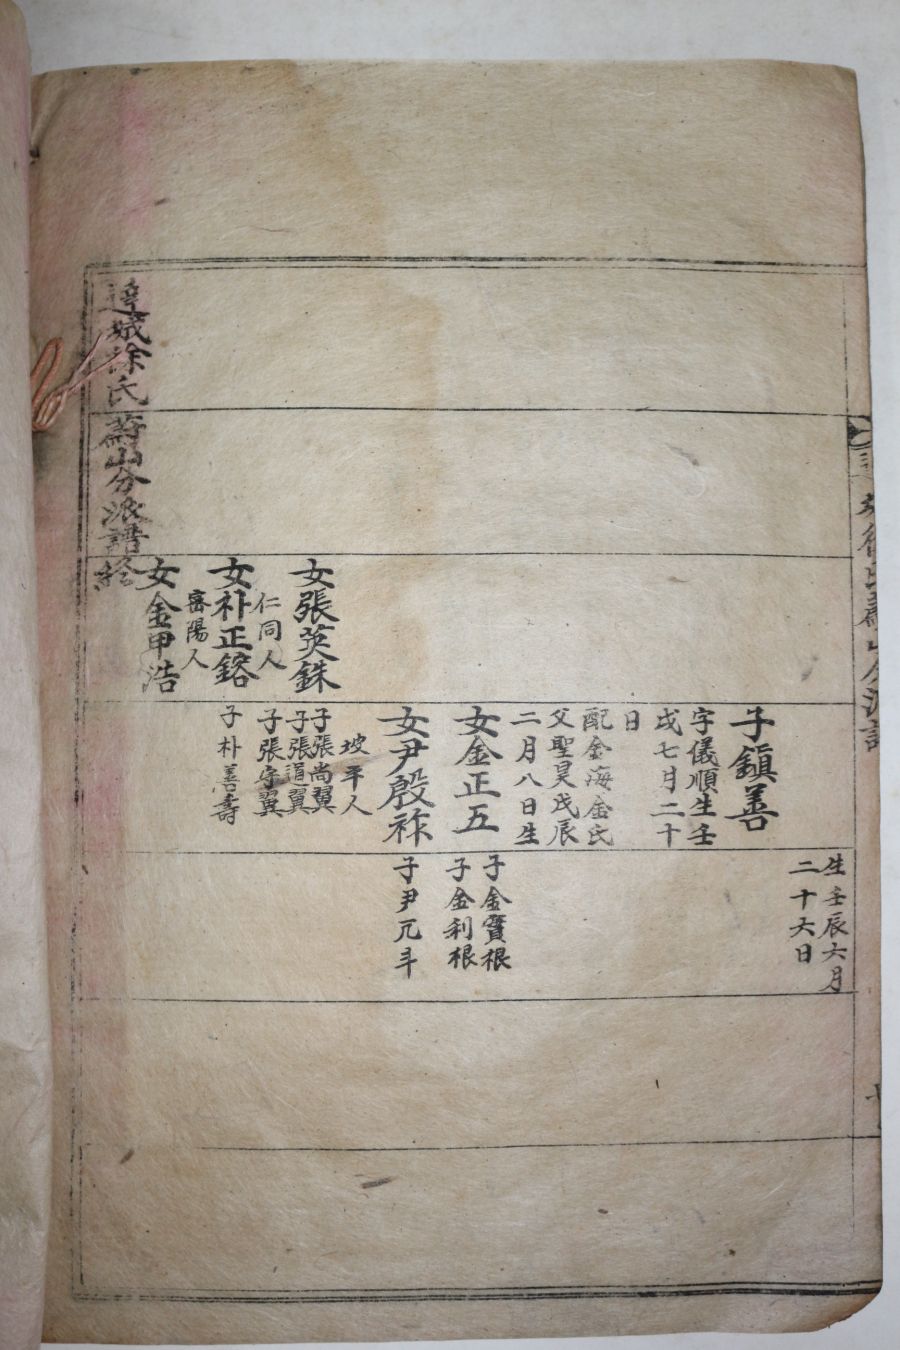 生壬辰六月
二十六日
子鎭善
字儀順生壬
戌七月二十
日
配金海金氏
父聖昊戊辰
二月八日生
女金正五
子金寶根
子金利根
女尹殷祚
坡平人
子尹元斗
女張英銖
仁同人
子張尚翼
子張道翼
子張守翼
女朴正鎔
密陽人
子朴善壽
女金甲浩
達城徐氏蔚山分派譜終